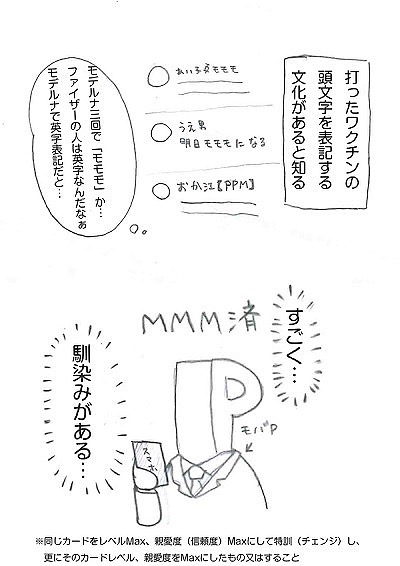 打ったワクチンの
頭文字を表記する
文化があると知る
あい子💉モモモ
うえ男
明日モモモになる
おか江【PPM】
モデルナ三回で「モモモ」か…
ファイザーの人は英字なんだなぁ
モデルナで英字表記だと…
MMM済
すごく…
馴染みがある…
P
モバP
スマホ
※同じカードをレベルMax、親愛度（信頼度）Maxにして特訓（チェンジ）し、
更にそのカードレベル、親愛度をMaxにしたもの又はすること